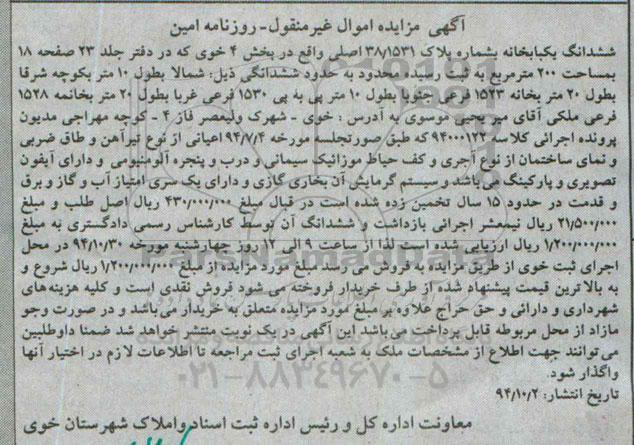 آگهی مزایده اموال غیرمنقول-روزنامه امین
ششدانگ یکبابخانه بشماره پلاک ۳۸/۱۵۳۱ اصلی واقع در بخش ۴ خوی که در دفتر جلد ۲۳ صفحه ۱۸
بمساحت ۲۰۰ مترمربع به ثبت رسیده محدود به حدود ششدانگی ذیل: شمالا بطول ۱۰ متر بکوچه شرقا
بطول ۲۰ متر بخانه ۱۵۲۳ فرعی جنوبا بطول ۱۰ متر پی به پی ۱۵۳۰ فرعی غربا بطول ۲۰ متر بخانمه ۱۵۲۸
فرعی ملکی آقای میر یحیی موسوی به آدرس : خوی - شهرک ولیعصر فاز ۴ - کوچه مهراجی مدیون
پرونده اجرائی کلاسه ۹۴۰۰۰۱۲۲ که طبق صورتجلسه مورخه ۹۴/۷/۴ اعیانی از نوع تیرآهن و طاق ضربی
و نمای ساختمان از نوع آجری و کف حیاط موزائیک سیمانی و درب و پنجره آلومنیومی و دارای آیفون
تصویری و پارکینگ می‌باشد و سیستم گرمایش آن بخاری گازی و دارای یک سری امتیاز آب و گاز و برق
و قدمت در حدود ۱۵ سال تخمین زده شده است در قبال مبلغ ۴۳۰/۰۰۰/۰۰۰ ریال اصل طلب و مبلغ
۲۱/۵۰۰/۰۰۰ ریال نیمعشر اجرائی بازداشت و ششدانگ آن توسط کارشناس رسمی دادگستری به مبلغ
۱/۲۰۰/۰۰۰/۰۰۰ ریال ارزیابی شده است لذا از ساعت ۹ الی ۱۲ روز چهارشنبه مورخه ۹۴/۱۰/۳۰ در محل
اجرای ثبت خوی از طریق مزایده به فروش می رسد مبلغ مورد مزایده از مبلغ ۱/۲۰۰/۰۰۰/۰۰۰ ریال شروع و
به بالاترین قیمت پیشنهاد شده از طرف خریدار فروخته می شود فروش نقدی است و کلیه هزینه‌های
شهرداری و دارائی و حق حراج علاوه بر مبلغ مورد مزایده متعلق به خریدار می‌باشد و در صورت وجو
مازاد از محل مربوطه قابل پرداخت می‌باشد این آگهی در یک نوبت منتشر خواهد شد ضمنا داوطلبین
می‌توانند جهت اطلاع از مشخصات ملک به شعبه اجرای ثبت مراجعه تا اطلاعات لازم در اختیار آنها
واگذار شود.
تاریخ انتشار: ۹۴/۱۰/۲
معاونت اداره کل و رئیس اداره ثبت اسناد واملاک شهرستان خوی
ParsNamadData
۰۲۱-۸۸۳۴۹۶۷۰-۵